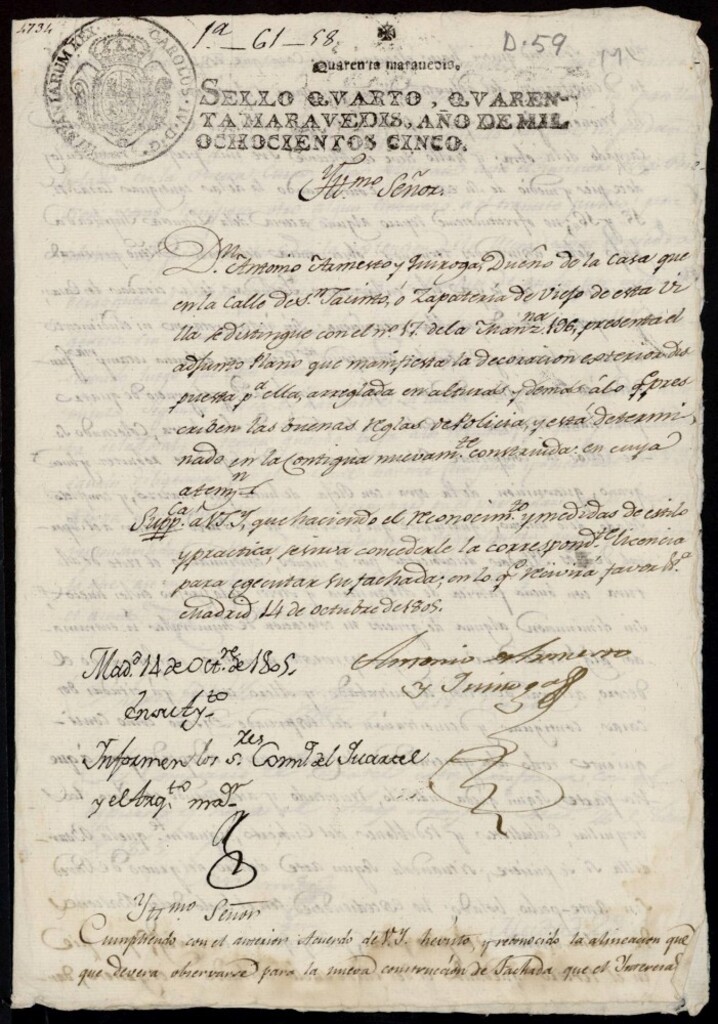 4734
1ª_61_58
D-59
M
HISPANIARUM REX CAROLUS IV D.G.
Quarenta maravedis.
SELLO QVARTO, QVAREN-
TA MARAVEDIS, AÑO DE MIL
OCHOCIENTOS CINCO.
Yttmo. Señor.
Dn. Antonio Armesto, y Quiroga, Dueño de la Casa que
en la Calle de Sn. Jacinto, ó Zapatería de Viejo de esta Vi
lla se distingue con el nº 17 de la Manzna. 196, presenta el
adjunto Plano que manifiesta la decoracion exterior dis
puesta pª ella, arreglada en alturas y demas á lo q.e pres
criben las buenas reglas de Policia, y está determi
nado en la Contigua nuevamte. construida: en cuya
atenn.
Suppca. a V.S.Y. que haciendo el reconocimto. y medidas de estilo
y practica, se sirva concederle la correspondte. licencia
para egecutar su fachada; en lo qe. recivirá favor &ª.
Madrid, 14 de octubre de 1805.
Antonio Armesto
y Quiroga
Madd. 14 de Octre. de 1805.
En su Aytto.
Informen los Sres. Comil. del Quartel
y el Arqto. mar.
Yttmo. Señor
Cumpliendo con el anterior Acuerdo de V.Y. he visto y reconocido la alineacion que
que devera observarse para la nueva construcción de Fachada que el Ynteresad